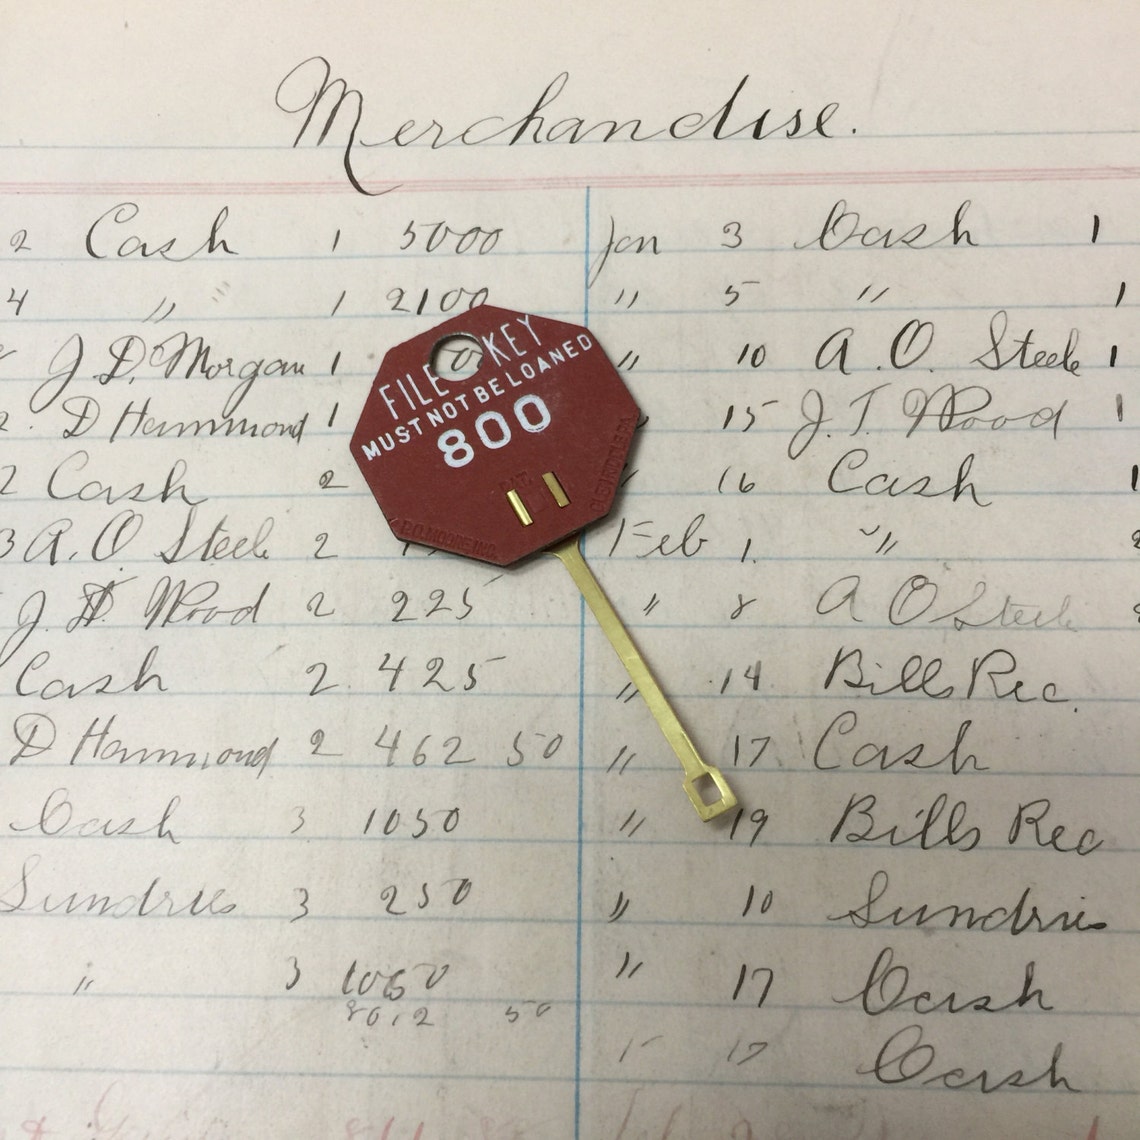 Merchandise.
2 Cash 1 5000 Jan 3 Cash 1
4 " 1 2100 " 5 " 1
J. D. Morgan 1 " 10 A. O. Steele 1
2. D Hammond 1 15 J. T. Wood 1
2 Cash 2 " 16 Cash 1
3 A. O Steele 2 Feb 1. " 2
J. H. Wood 2 225 " 8 A O Steele 2
Cash 2 425 " 14 Bills Rec.
D Hammond 2 462 50 " 17 Cash
Cash 3 1050 " 19 Bills Rec
Sundries 3 250 " 10 Sundries
" 3 1050 " 17 Cash
8012 50
" 17 Cash
FILE KEY
MUST NOT BE LOANED
800
P.O. MOORE INC.